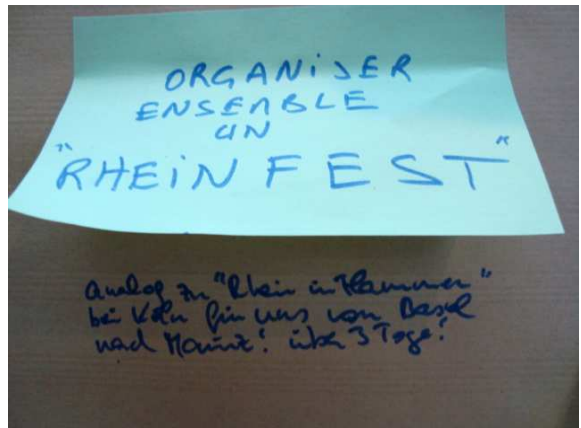 ORGANISER
ENSEMBLE
UN
"RHEIN FEST"
analog zu "Rhein in Flammen"
bei Köln für uns von Basel
nach Mainz! über 3 Tage!